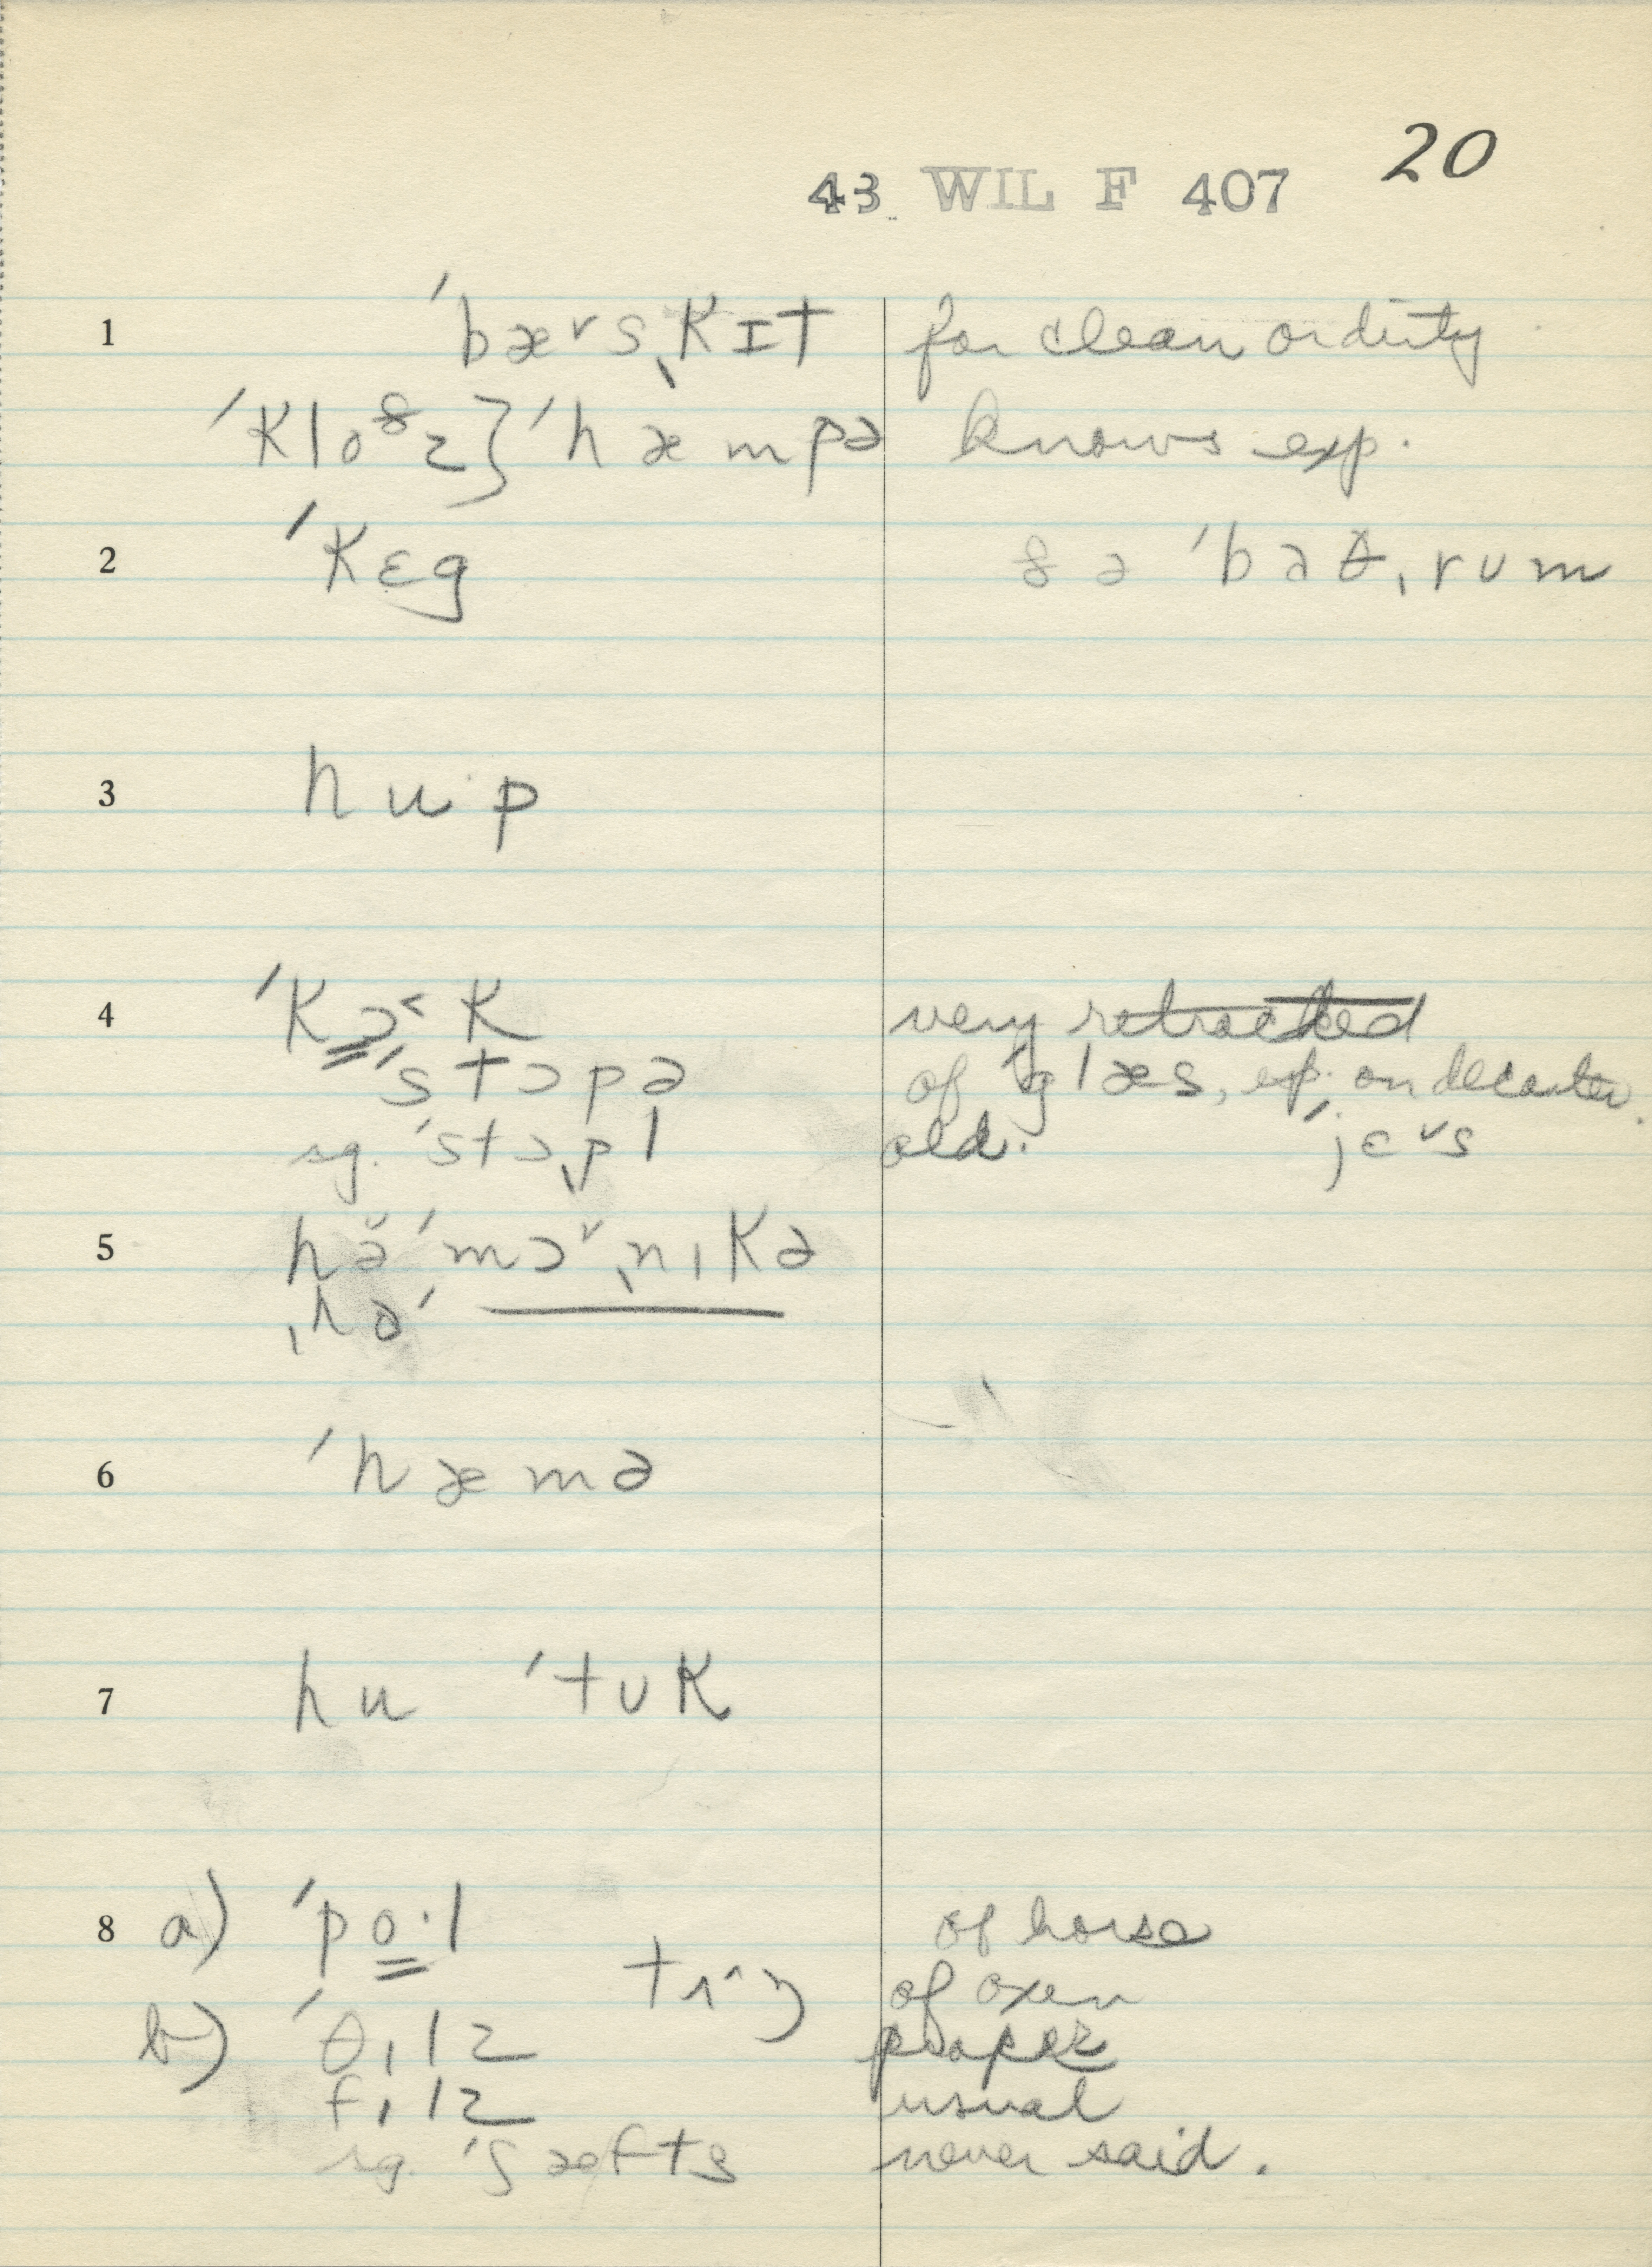 20
43 WIL F 407
1 ˈbæ˅sˌkɪt for clean or dirty
ˈklo⁸z} ˈhæmpə knows exp.
2 ˈkɛg ðə ˈbaθˌrʊm
3 hu·p
4 ˈkɔ˂k very retracted
ˈstɔpə of ˈglæs, esp. on decanter.
sg. ˈstɔˌpl old. ˈjɛ˅s
5 hə̆ˈmɔ˅ˌnɪkə
ˌhəˈ ———
6 ˈhæmə
7 hu ˈtʊk
8 a) ˈpo·l of horse
tʌ^ŋ of oxen
b) ˈθɪlz proper
fɪlz usual
sg. ˈʃæfts never said.